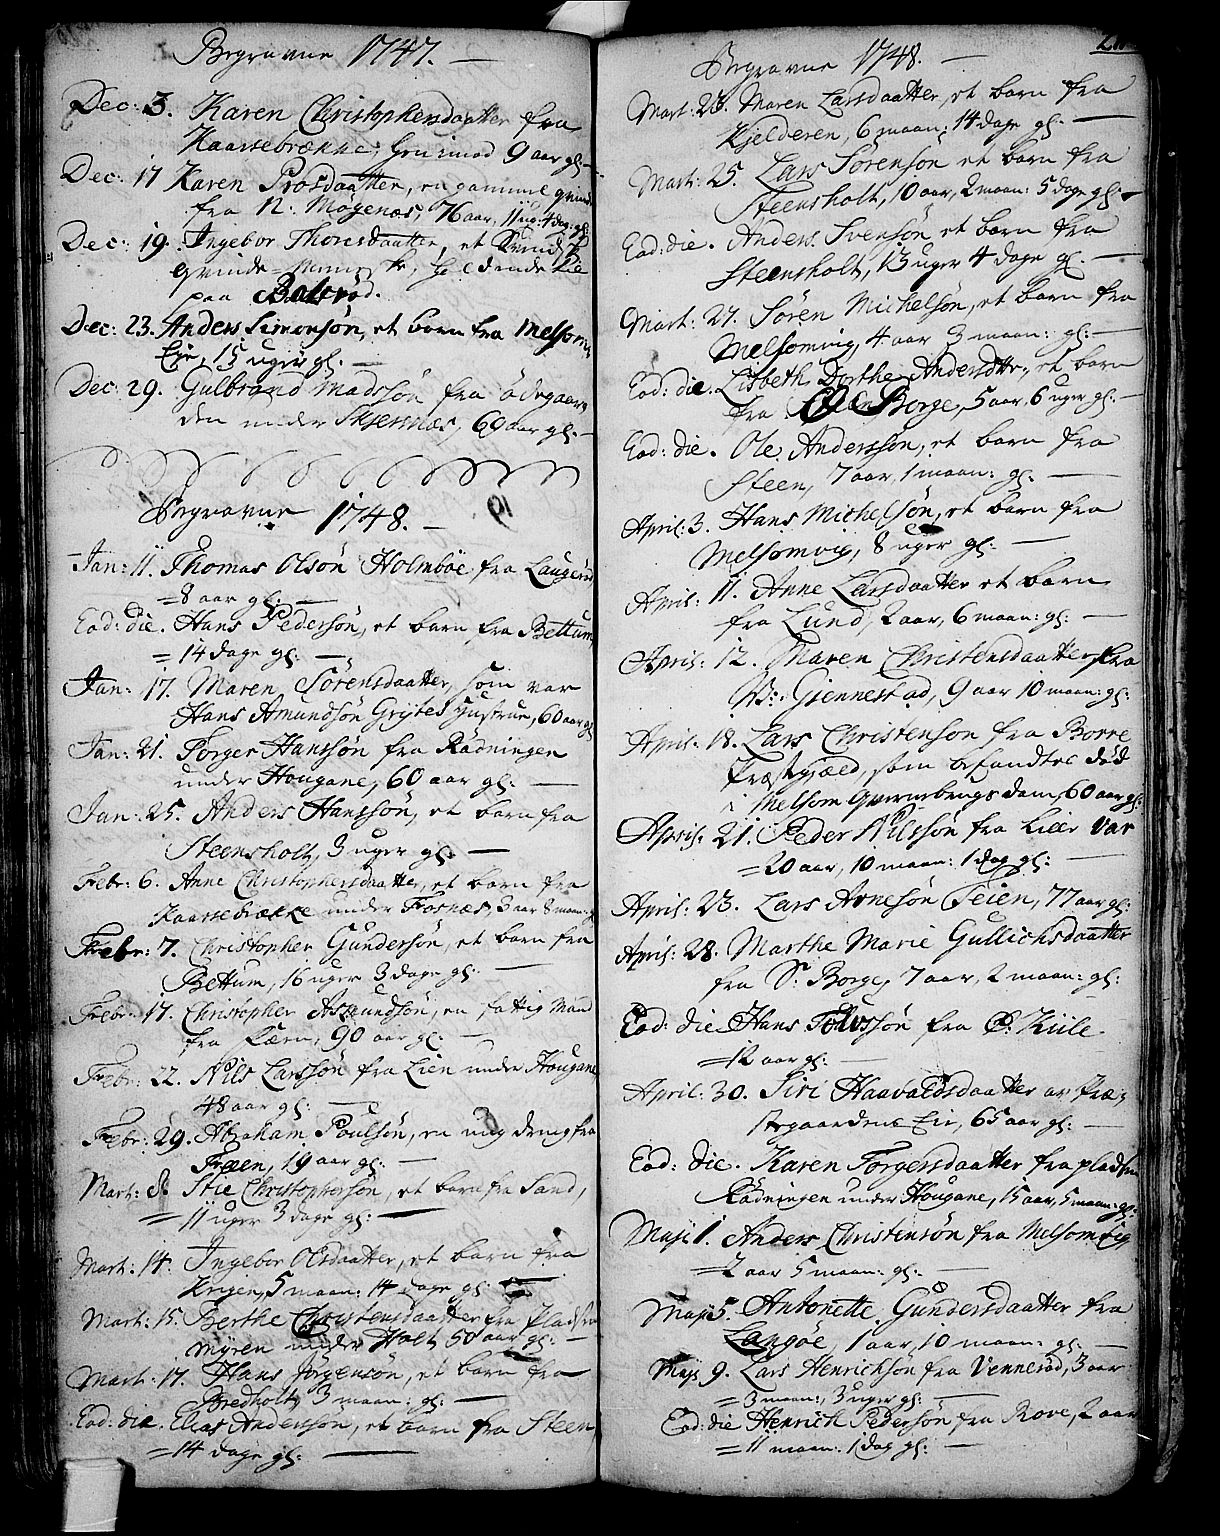 Begravne 1747. —
Dec: 3. Karen Christophersdaatter fra
Kaarsebrække, 9 aar gl: —
Dec: 17 Karen Prosdaatter, en gammel qvinde
fra N: Mogenæs, 76 aar, 11 ug: 4 dag: gl:
Dec: 19. Ingebor Thoresdaatter, et
qvinde-Menniske,
paa Bolsrød.
Dec: 23. Anders Simonsøn, et barn fra Melsom
Eie, 15 uger gl: —
Dec: 29. Gulbrand Madssøn fra ødegaar-
den under Skjernæs, 69 aar gl: —
Begravne 1748. —
Jan: 11. Thomas Olsøn Holmbøe fra Laugerud
= 8 aar gl: —
Ead: die. Hans Pedersøn, et barn fra Bettum,
= 14 dage gl: —
Jan: 17. Maren Sørensdaatter, som var
Hans Amundsøn Grytes Hustrue, 60 aar gl
Jan: 21. Torger Hanssøn fra Rødningen
under Hougane, 60 aar gl: —
Jan: 25. Anders Hanssøn, et barn fra
Steensholt, 3 uger gl: —
Febr: 6. Anne Christophersdaatter, et barn fra
Kaarsebrække under Fosnæs, 3 aar 8 maan: gl
Febr: 7. Christopher Gundersøn, et barn fra
Bettum, 16 uger 3 dage gl: —
Febr: 17. Christopher Asmundsøn, en fattig Mand
fra Kærn, 90 aar gl: —
Febr: 22. Nils Larssøn fra Lien under Hougane
48 aar gl: —
Febr: 29. Abraham Poulsøn, en ung dreng fra
Fræen, 19 aar gl: —
Mart: 8. Stie Christophersøn, et barn fra Sand,
= 11 uger 3 dage gl: —
Mart: 14. Ingebor Olsdaatter, et barn fra
Krigen, 5 maan: 14 dage gl: —
Mart: 15. Berthe Christensdaatter fra Pladsen
Myren under Holt 50 aar gl: —
Mart: 17. Hans Jørgensøn, et barn fra
Bredholt, 3 maan: gl: —
Ead: die. Elias Andersøn, et barn fra Steen
= 14 dage gl: —
Begravne 1748. —
Mart: 23. Maren Larsdaatter, et barn fra
Kjelderen, 6 maan: 14 dage gl: —
Mart: 25. Lars Sørensøn et barn fra
Steensholt, 10 aar, 2 maan: 5 dage gl: —
Ead: die. Anders Svensøn et barn fra
Steensholt, 13 uger 4 dage gl: —
Mart: 27. Søren Michelsøn, et barn fra
Melsomvig, 4 aar 3 maan: gl: —
Ead: die. Lisbeth Dorthe Andersdtr, et barn
fra Borge, 5 aar, 6 uger gl: —
Ead: die. Ole Anderssøn, et barn fra
Steen, 7 aar, 1 maan: gl: —
April: 3. Hans Michelsøn, et barn fra
Melsomvig, 8 uger gl: —
April: 11. Anne Larsdaatter et barn
fra Lund, 2 aar, 6 maan: gl: —
April: 12. Maren Christensdaatter fra
N: Giennestad, 9 aar 10 maan: gl:
April: 18. Lars Christensøn fra Borre
Præstegjæld, som befandtes død
i Melsom Qvernbrugs dam, 60 aar gl:
April: 21. Peder Nilssøn fra Lille Var
= 20 aar, 10 maan: 1 dag gl: —
April: 23. Lars Arnesøn Feien, 77 aar gl:
April: 28. Marthe Marie Gullichsdaatter
fra S: Borge, 7 aar, 2 maan: gl:
Ead: die Hans Tolvssøn fra Ø. Kiile
= 12 aar gl: —
April: 30. Siri Haavaldsdaatter av Præ-
stegaardens Eie, 65 aar gl: —
Ead: die. Karen Torgersdaatter fra pladsen
Rødningen under Hougane, 15 aar, 5 maan: gl:
Maji 1. Anders Christensøn fra Melsomvig
= 2 aar 5 maan: gl: —
Maji 5. Antonette Gundersdaatter fra
Langøe, 1 aar, 10 maan: gl: —
Maji 9. Lars Henrichsøn fra Vennerød, 3 aar
= 3 maan:, 3 uger gl: —
Ead: die Henrich Pedersøn fra Rove, 2 aar
= 11 maan: 1 dag gl: —